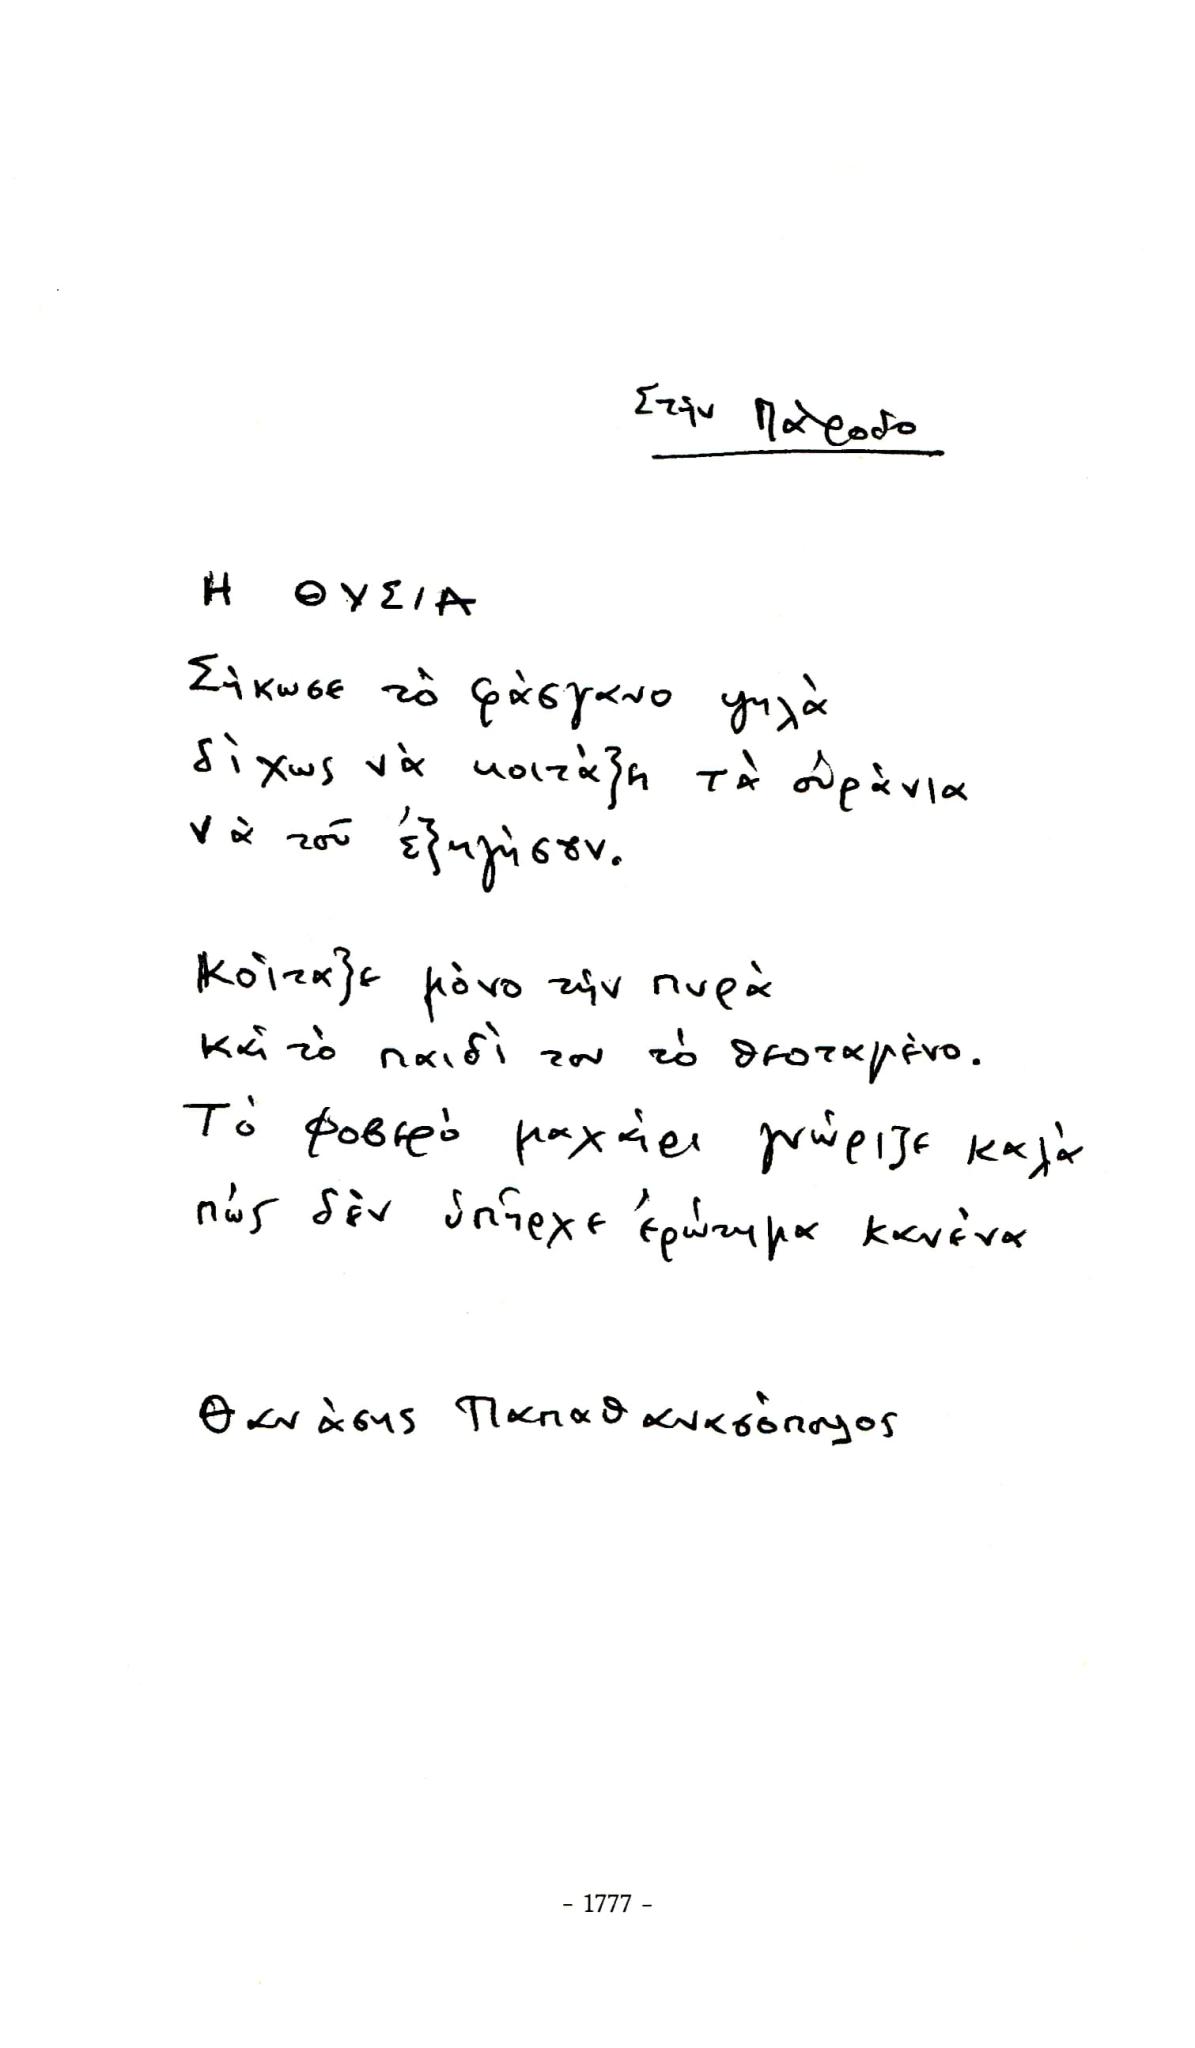 Στὴν Πάροδο
Η ΘΥΣΙΑ
Σήκωσε τὸ φάσγανο ψηλὰ
δίχως νὰ κοιτάξη τὰ οὐράνια
νὰ τοῦ ἐξηγήσουν.
Κοίταξε μόνο τὴν πυρὰ
καὶ τὸ παιδὶ του τὸ θεοταμένο.
Τὸ φοβερὸ μαχαίρι γνώριζε καλὰ
πὼς δὲν ὑπῆρχε ἐρώτημα κανένα
Θανάσης Παπαθανασόπουλος
- 1777 -